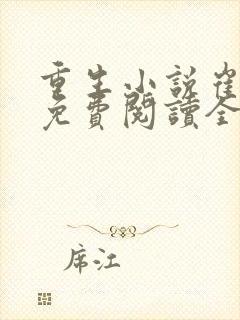 重生小説崔
免費閱讀全
席江